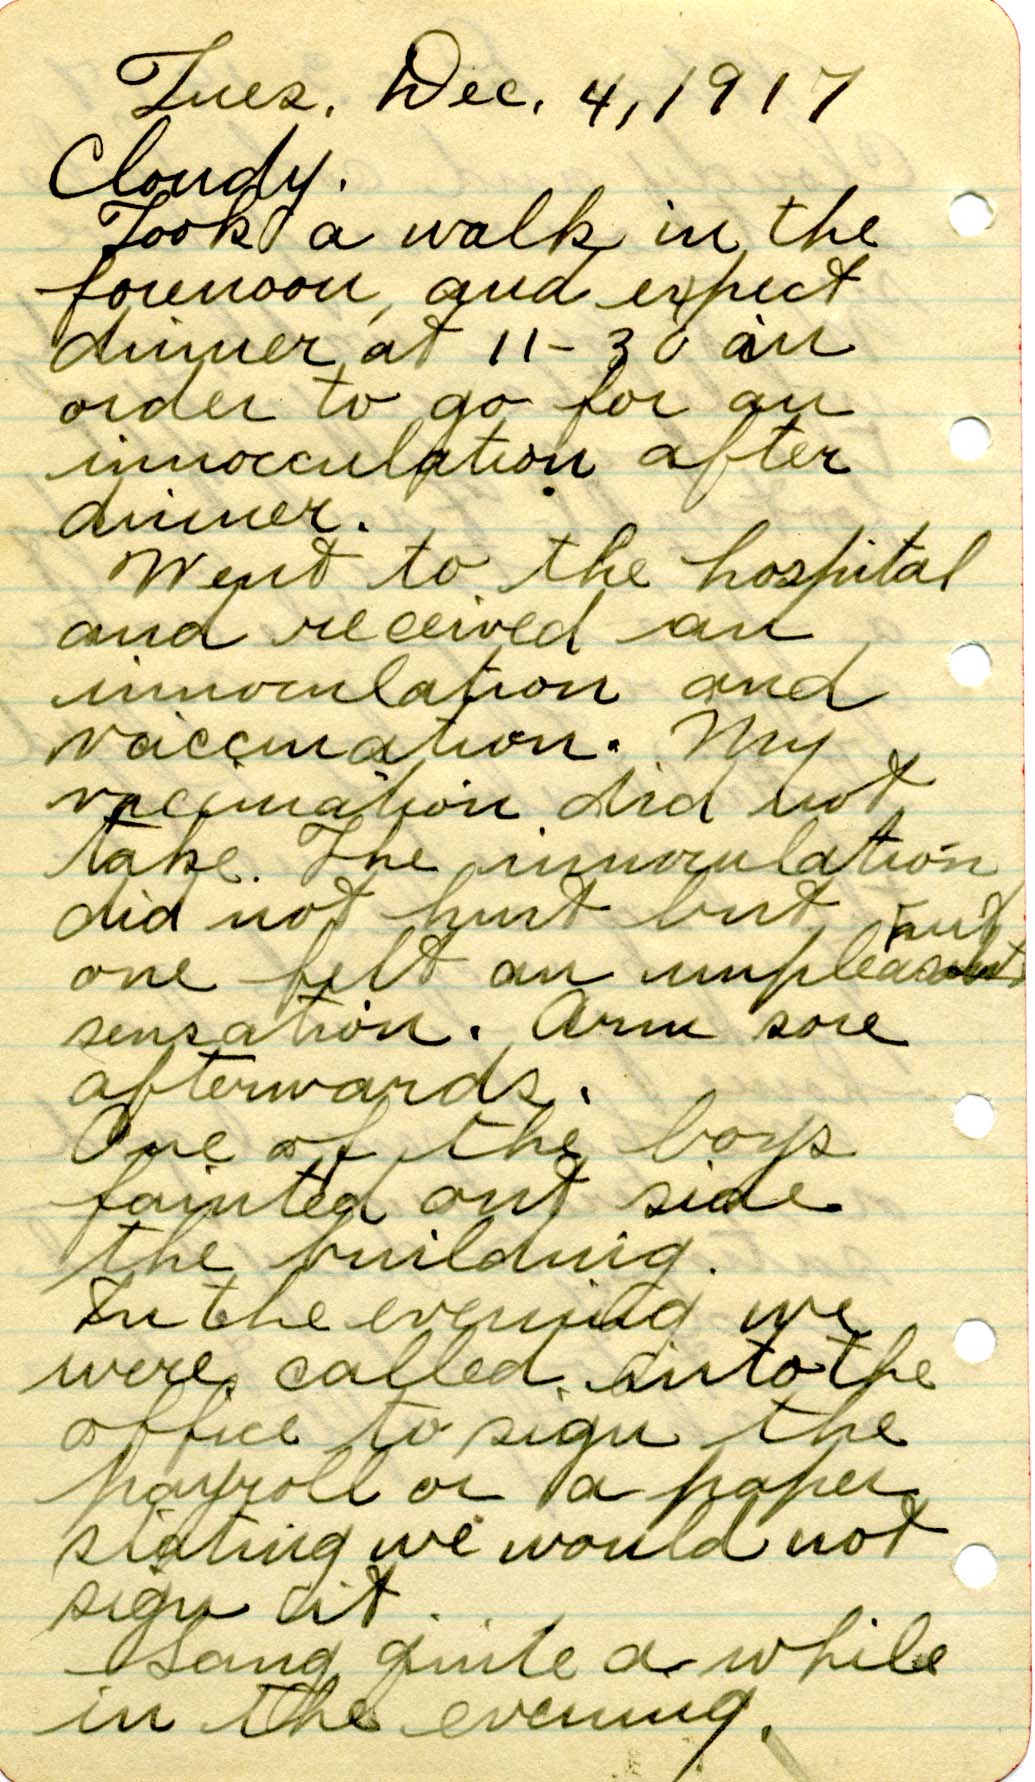 Tues. Dec. 4, 1917
Cloudy.
Took a walk in the
forenoon, and expect
dinner at 11-30 in
order to go for an
innocculation after
dinner.
Went to the hospital
and received an
innoculation and
vaiccination. My
vaccination did not
take. The innoculation
did not hurt but
one felt an unpleasant
sensation. Arm sore
afterwards.
One of the boys
fainted out side
the building.
In the evening we
were called into the
office to sign the
payroll or a paper
stating we would not
sign it.
Sang quite a while
in the evening.